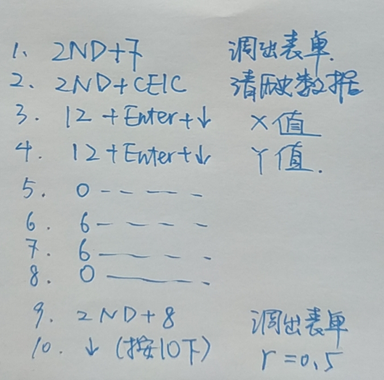 1. 2ND+7 调出表单.
2. 2ND+CEIC 清历史数据
3. 12+Enter+↓ X值
4. 12+Enter+↓ Y值.
5. 0-----
6. 6-----
7. 6-----
8. 0-----
9. 2ND+8 调出表单
10. ↓ (按10下) r=0.5